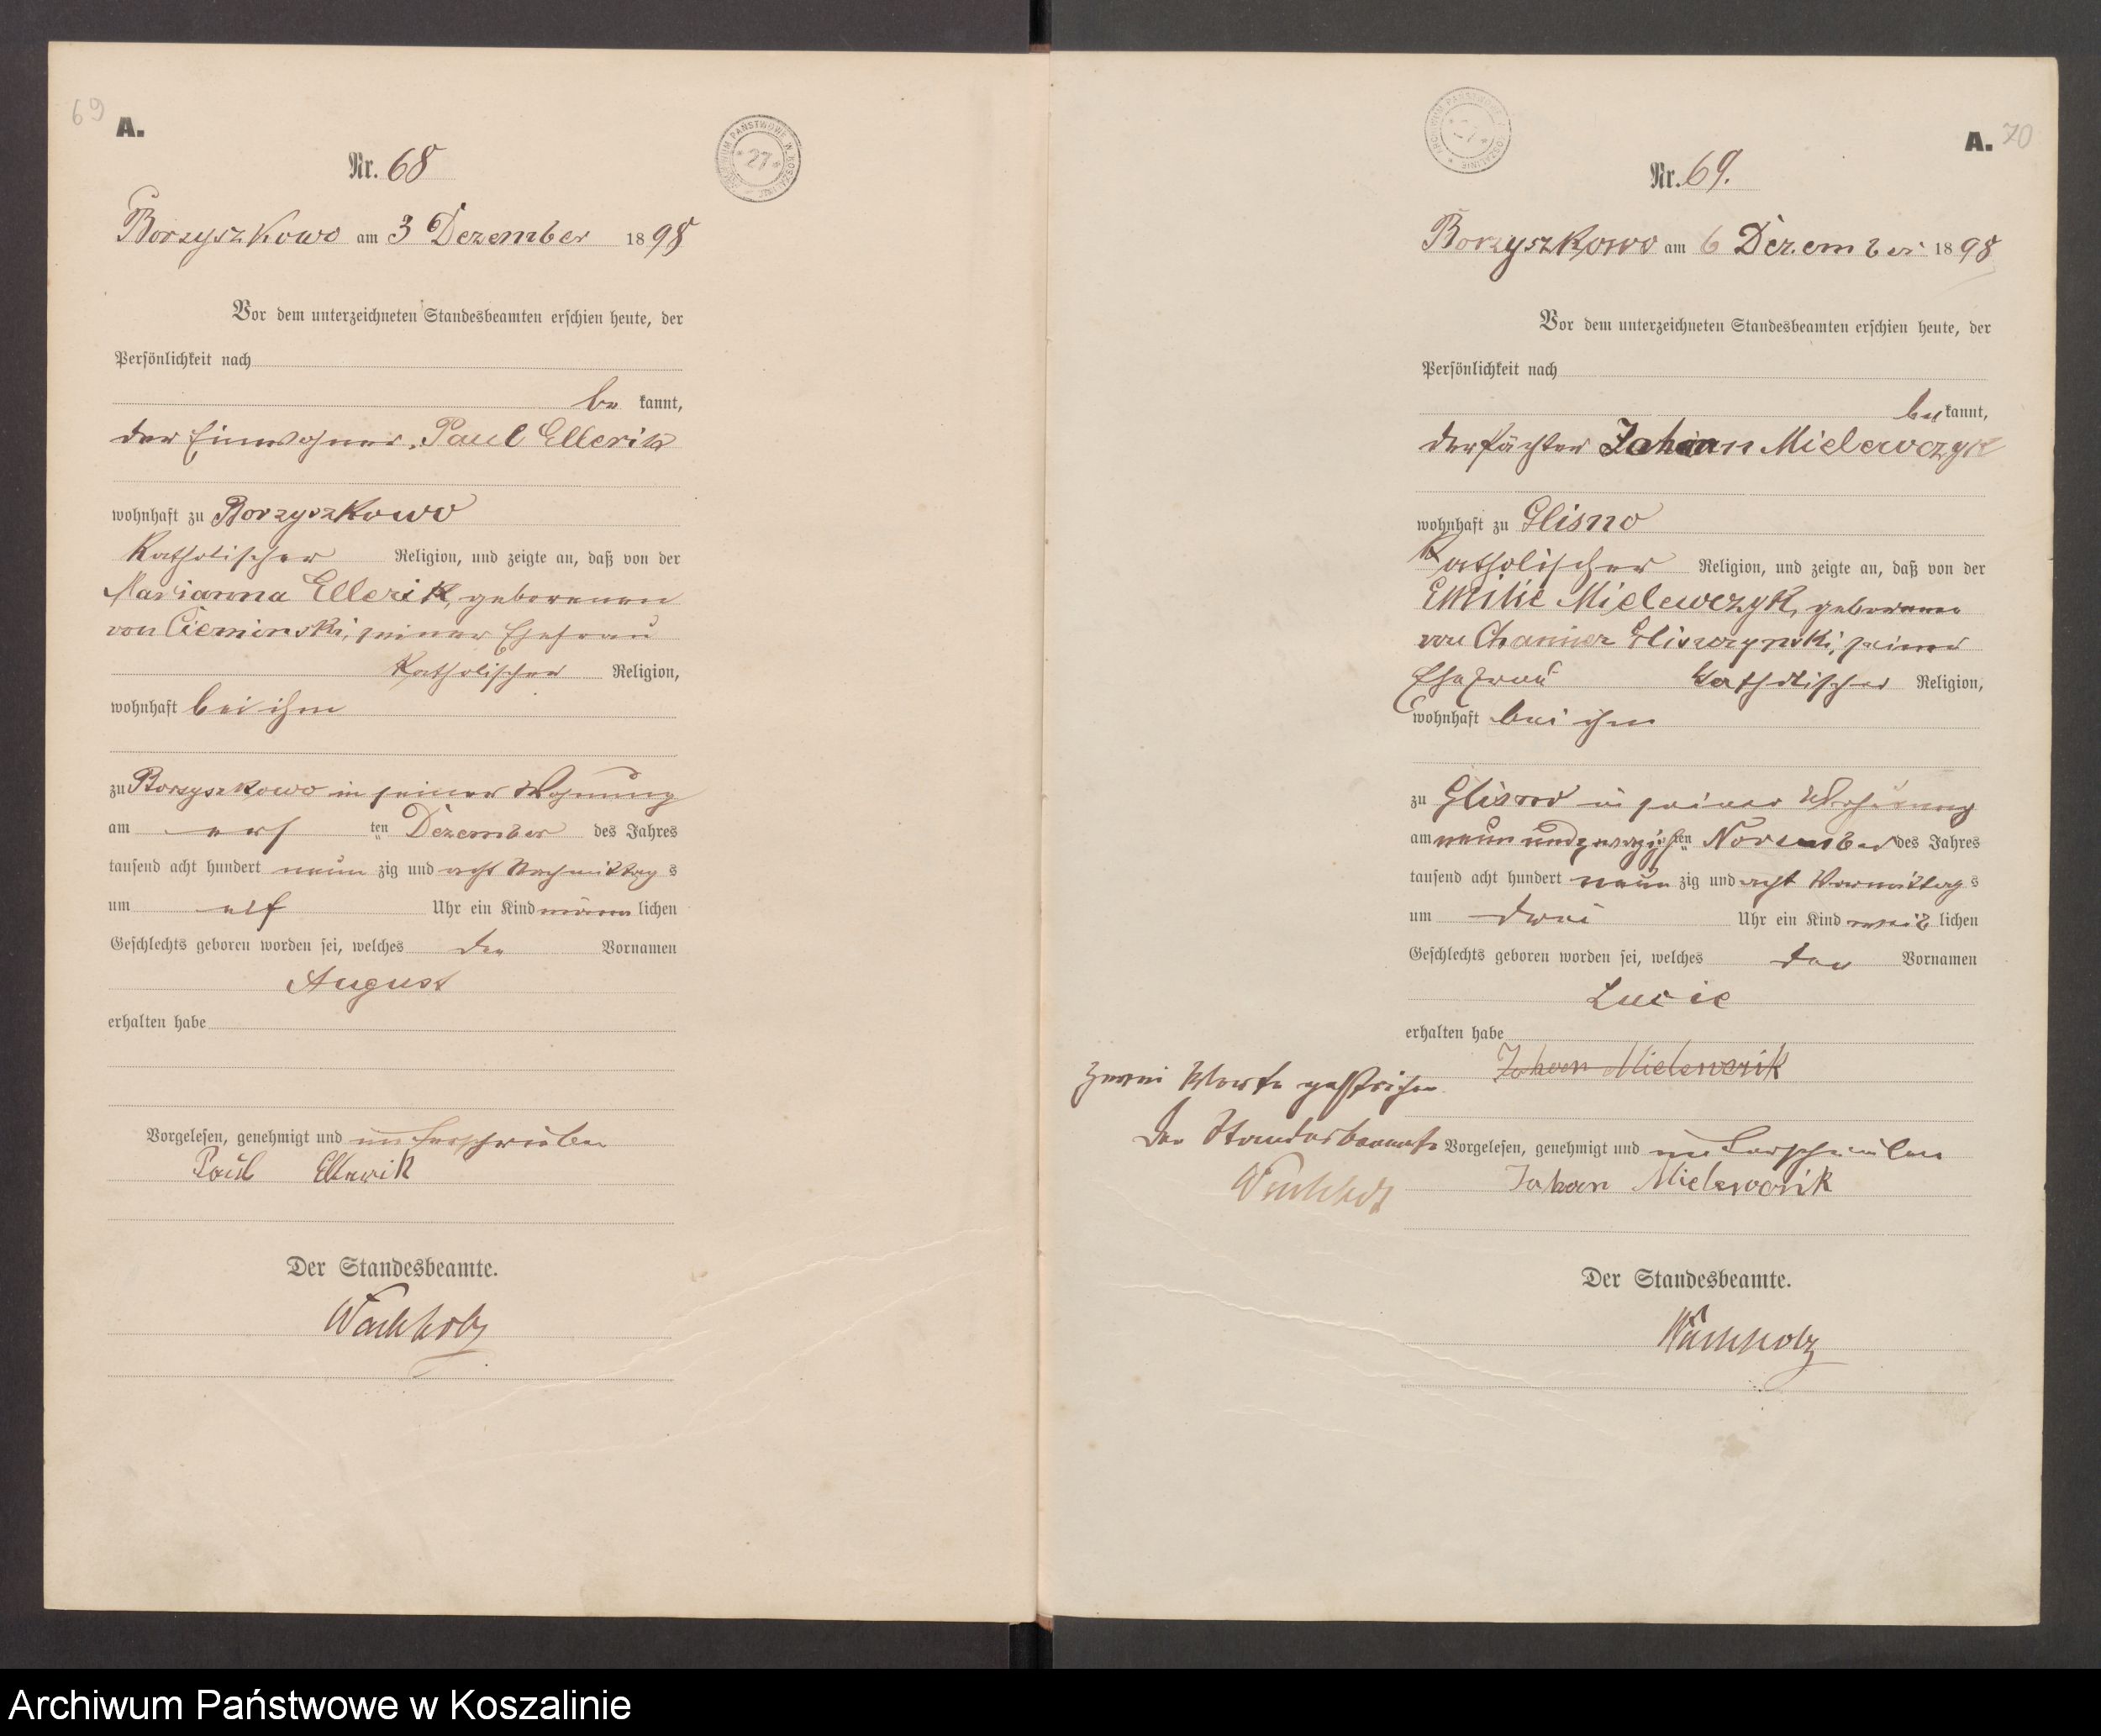 69
A.
ARCHIWUM PAŃSTWOWE W KOSZALINIE
* 27 *
Nr. 68
Borzyszkowo am 3 Dezember 1898
Vor dem unterzeichneten Standesbeamten erschien heute, der
Persönlichkeit nach
be kannt,
der Einwohner Paul Ellerik
wohnhaft zu Borzyszkowo
Katholischer Religion, und zeigte an, daß von der
Marianna Ellerik, geborenen
von Cieminski, seiner Ehefrau
Katholischer Religion,
wohnhaft bei ihm
zu Borzyszkowo in seiner Wohnung
am ten Dezember des Jahres
tausend acht hundert neun zig und acht Nachmittag s
um elf Uhr ein Kind männ lichen
Geschlechts geboren worden sei, welches den Vornamen
August
erhalten habe
Vorgelesen, genehmigt und unterschrieben
Paul Ellerik
Der Standesbeamte.
Wachholz
ARCHIWUM PAŃSTWOWE W KOSZALINIE
A. 70
Nr. 69.
Borzyszkowo am 6 Dezember 1898
Vor dem unterzeichneten Standesbeamten erschien heute, der
Persönlichkeit nach
be kannt,
der Pächter Johann Mielewczyk
wohnhaft zu Glisno
Katholischer Religion, und zeigte an, daß von der
Emilie Mielewczyk, geborenen
von Chamier Gliszczynski, seiner
Ehefrau Katholischer Religion,
wohnhaft bei ihm
zu Glisno in seiner Wohnung
am neun und zwanzigsten November des Jahres
tausend acht hundert neun zig und acht Vormittag s
um drei Uhr ein Kind weib lichen
Geschlechts geboren worden sei, welches den Vornamen
Lucie
erhalten habe
Johan Mielewczik
Zwei Worte gestrichen
Der Standesbeamte
Wachholz
Vorgelesen, genehmigt und unterschrieben
Johan Mielewczik
Der Standesbeamte.
Wachholz
Archiwum Państwowe w Koszalinie